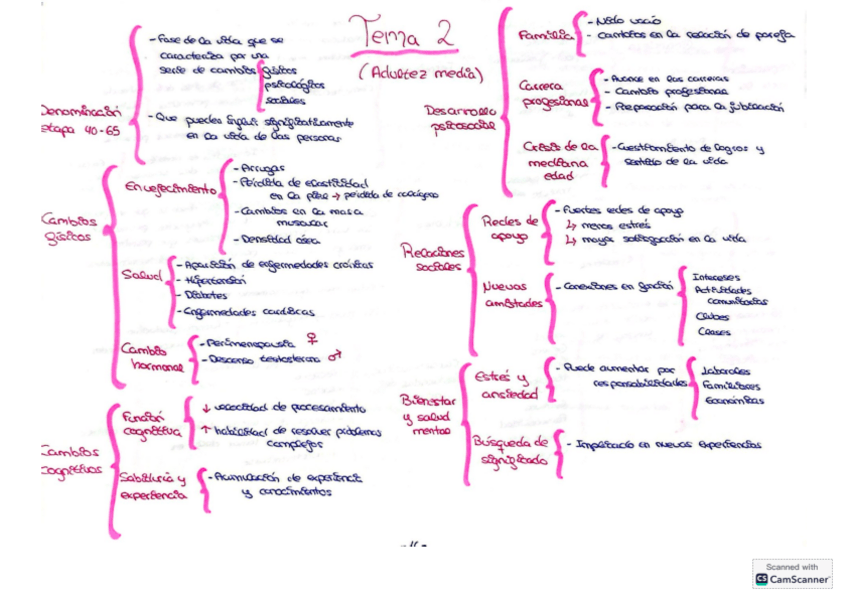 Tema 2
(Adultez media)
Denominación
etapa 40-65
- Fase de la vida que se
caracteriza por una
serie de cambios
físicos
psicológicos
sociales
- Que pueden influir significativamente
en la vida de las personas
Cambios
físicos
Envejecimiento
- Arrugas
- Pérdida de elasticidad
en la piel → pérdida de colágeno
- Cambios en la masa
muscular
- Densidad ósea
Salud
- Aparición de enfermedades crónicas
- Hipertensión
- Diabetes
- Enfermedades cardíacas
Cambio
hormonal
- Perimenopausia ♀
- Descenso testosterona ♂
Cambios
cognitivos
Función
cognitiva
↓ velocidad de procesamiento
↑ habilidad de resolver problemas
complejos
Sabiduría y
experiencia
- Acumulación de experiencia
y conocimientos
Desarrollo
psicosocial
Familia
- Nido vacío
- Cambios en la relación de pareja
Carrera
profesional
- Avance en las carreras
- Cambio profesional
- Preparación para la jubilación
Crisis de la
mediana
edad
- Cuestionamiento de logros y
sentido de la vida
Relaciones
sociales
Redes de
apoyo
- Fuertes redes de apoyo
↳ menos estrés
↳ mayor satisfacción en la vida
Nuevas
amistades
- Conexiones en función
Intereses
Actividades
comunitarias
Clubes
Clases
Bienestar
y salud
mental
Estrés y
ansiedad
- Puede aumentar por
responsabilidades
Laborales
Familiares
Económicas
Búsqueda de
significado
- Implicación en nuevas experiencias
Scanned with
CS CamScanner